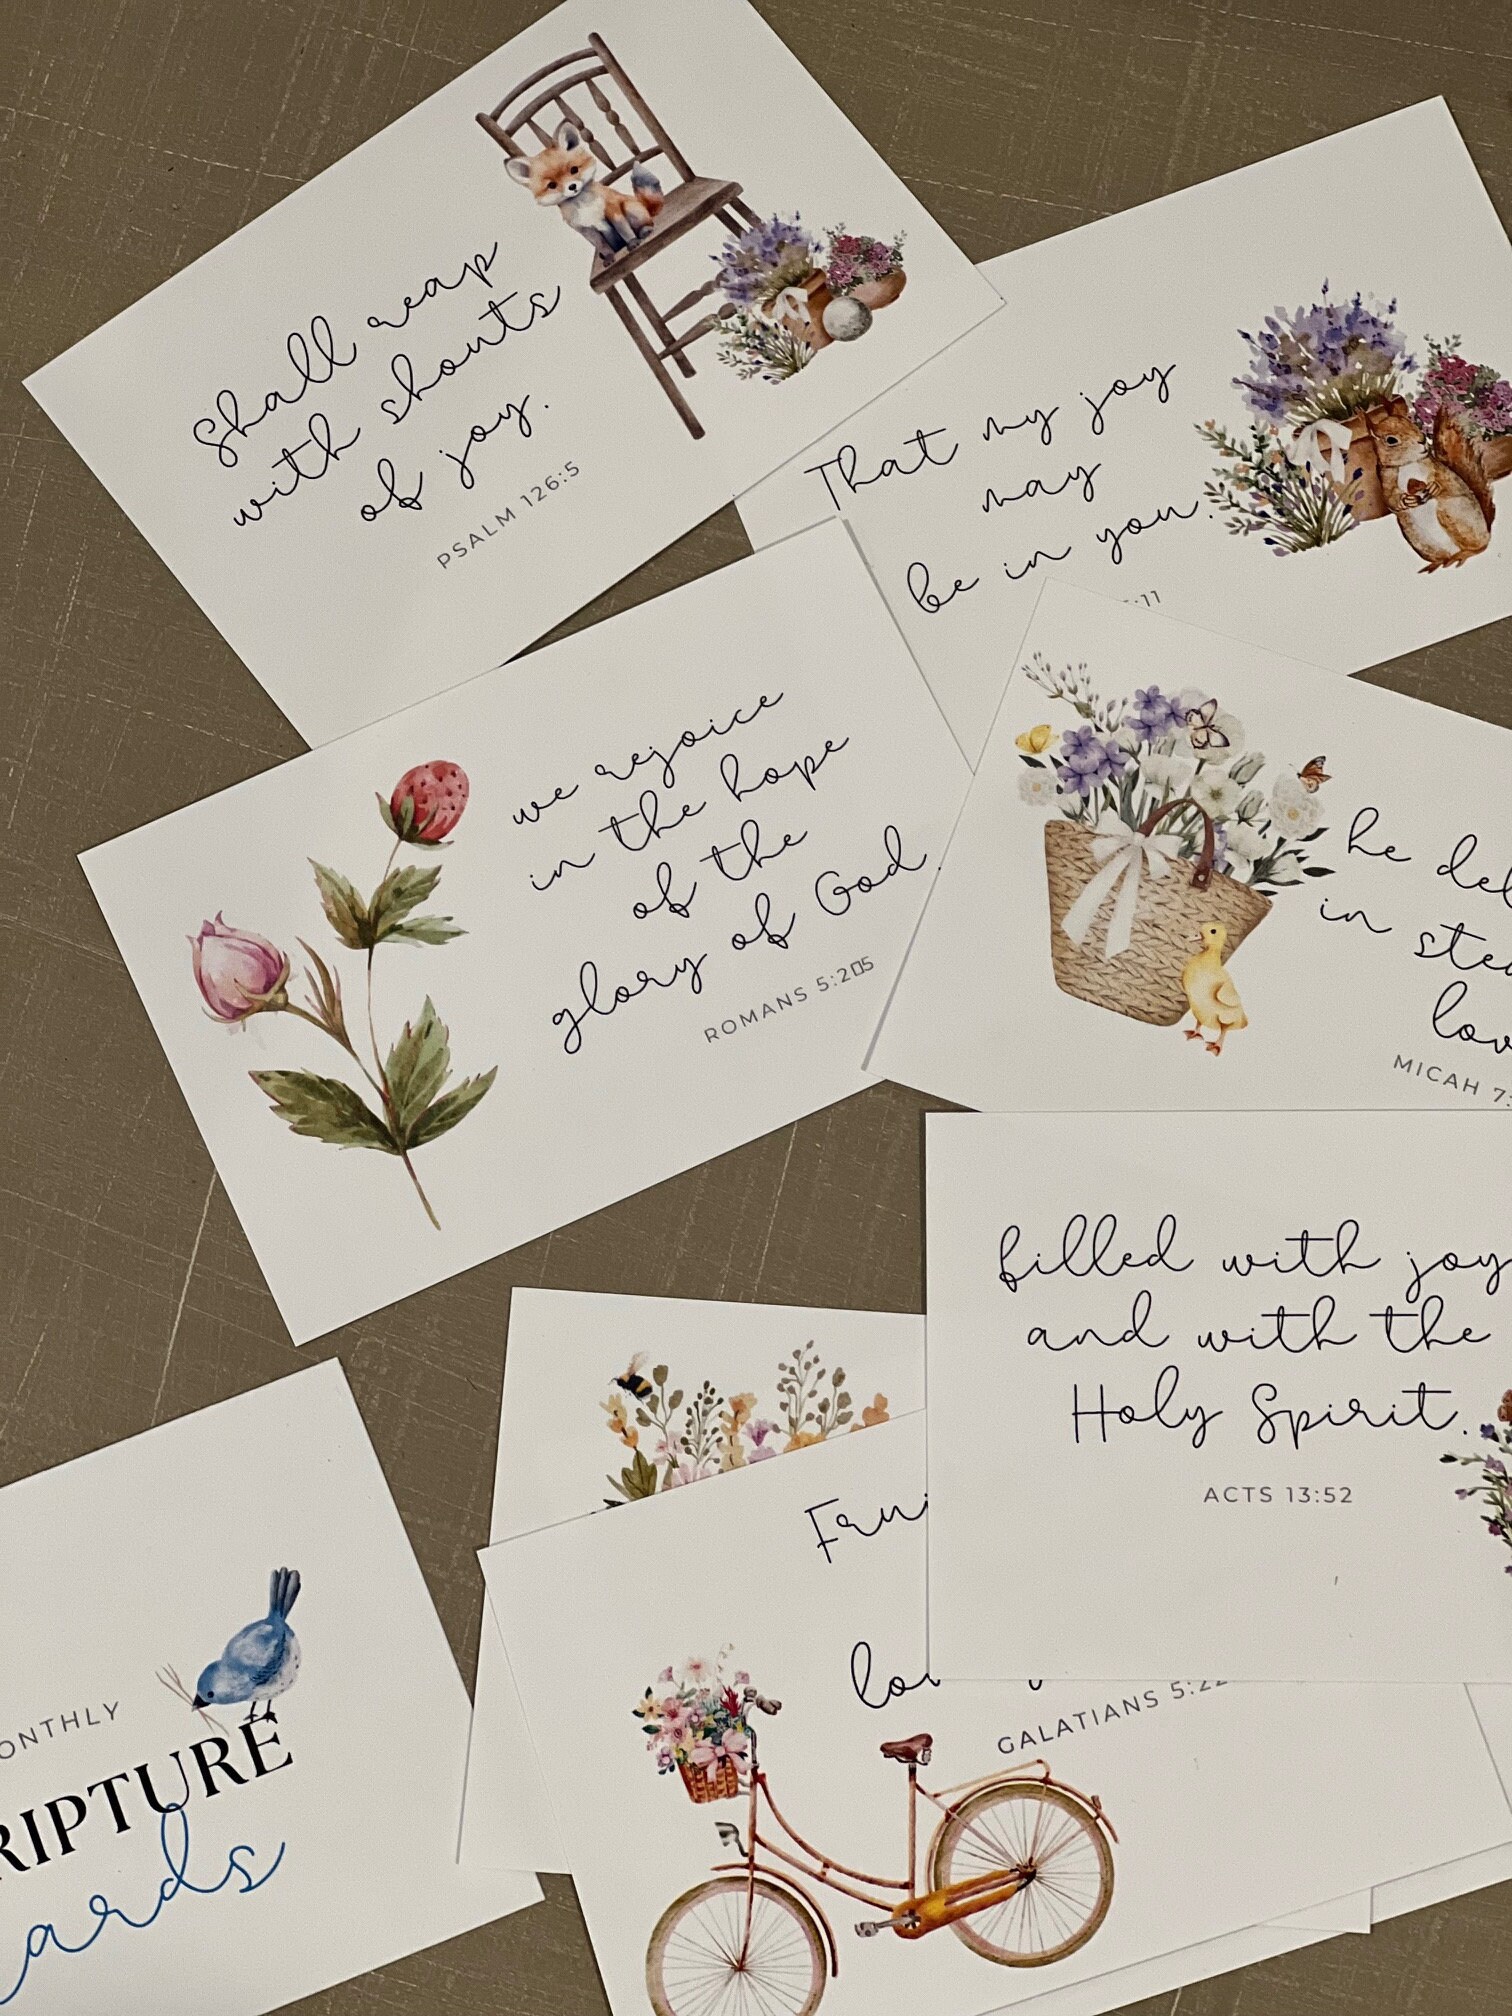 Shall reap
with shouts
of joy.
PSALM 126:5
That my joy
may
be in you.
:11
we rejoice
in the hope
of the
glory of God.
ROMANS 5:2▯5
he del
in stea
lov
MICAH 7:
filled with joy
and with the
Holy Spirit.
ACTS 13:52
Frui
lov
GALATIANS 5:22
ONTHLY
RIPTURE
ards